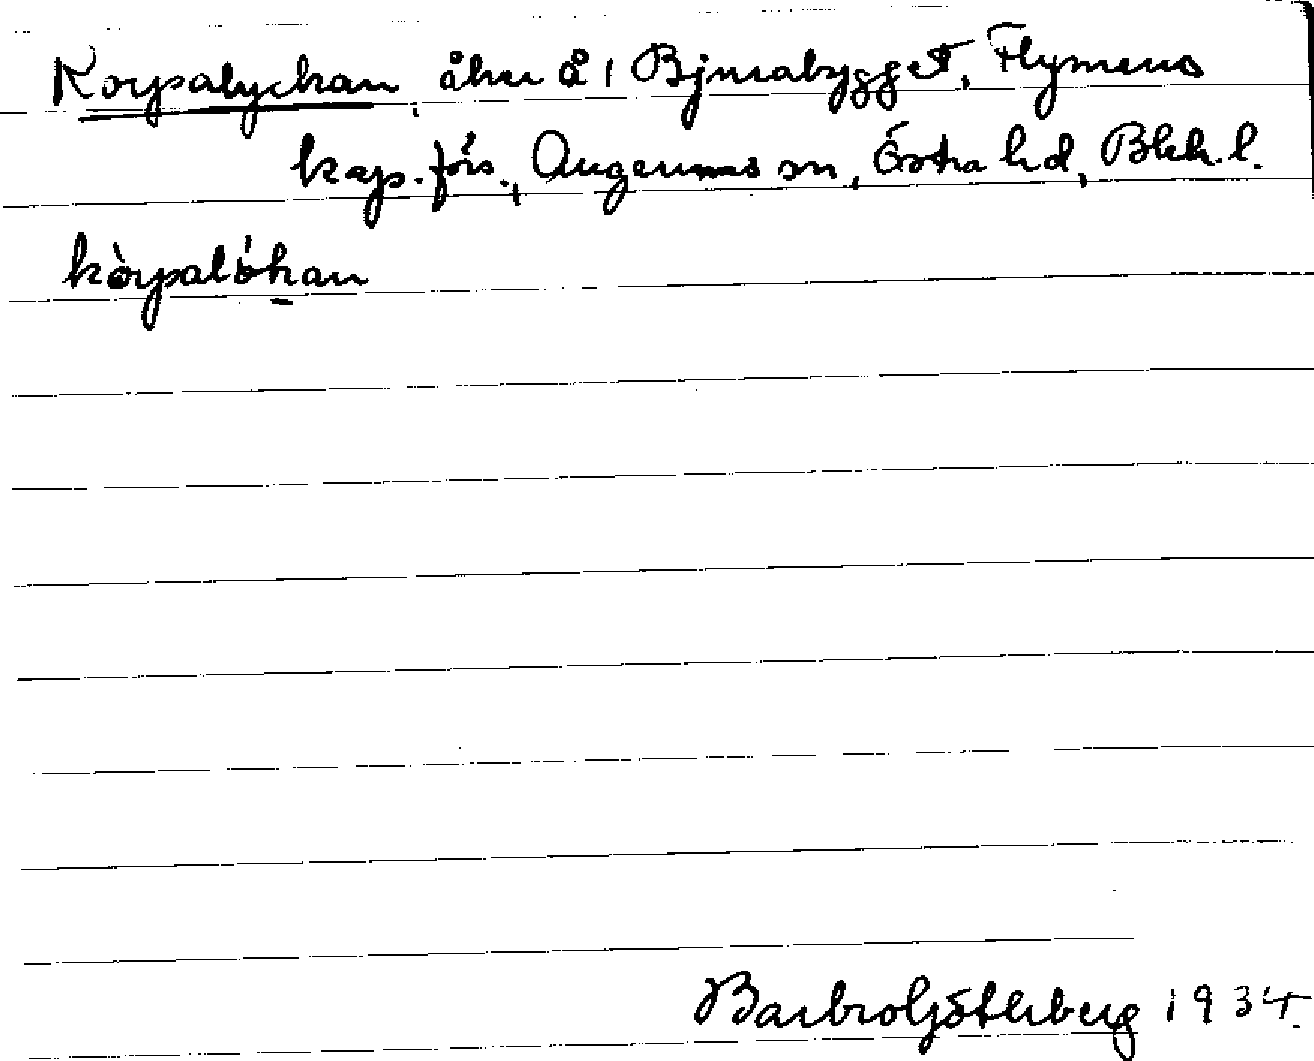 Korpalyckan, åker å 1 Bjurabygget, Flymens
kap. förs., Augerums sn, Östra hd, Blek. l.
kòrpalókan
Barbro Göterberg 1934.